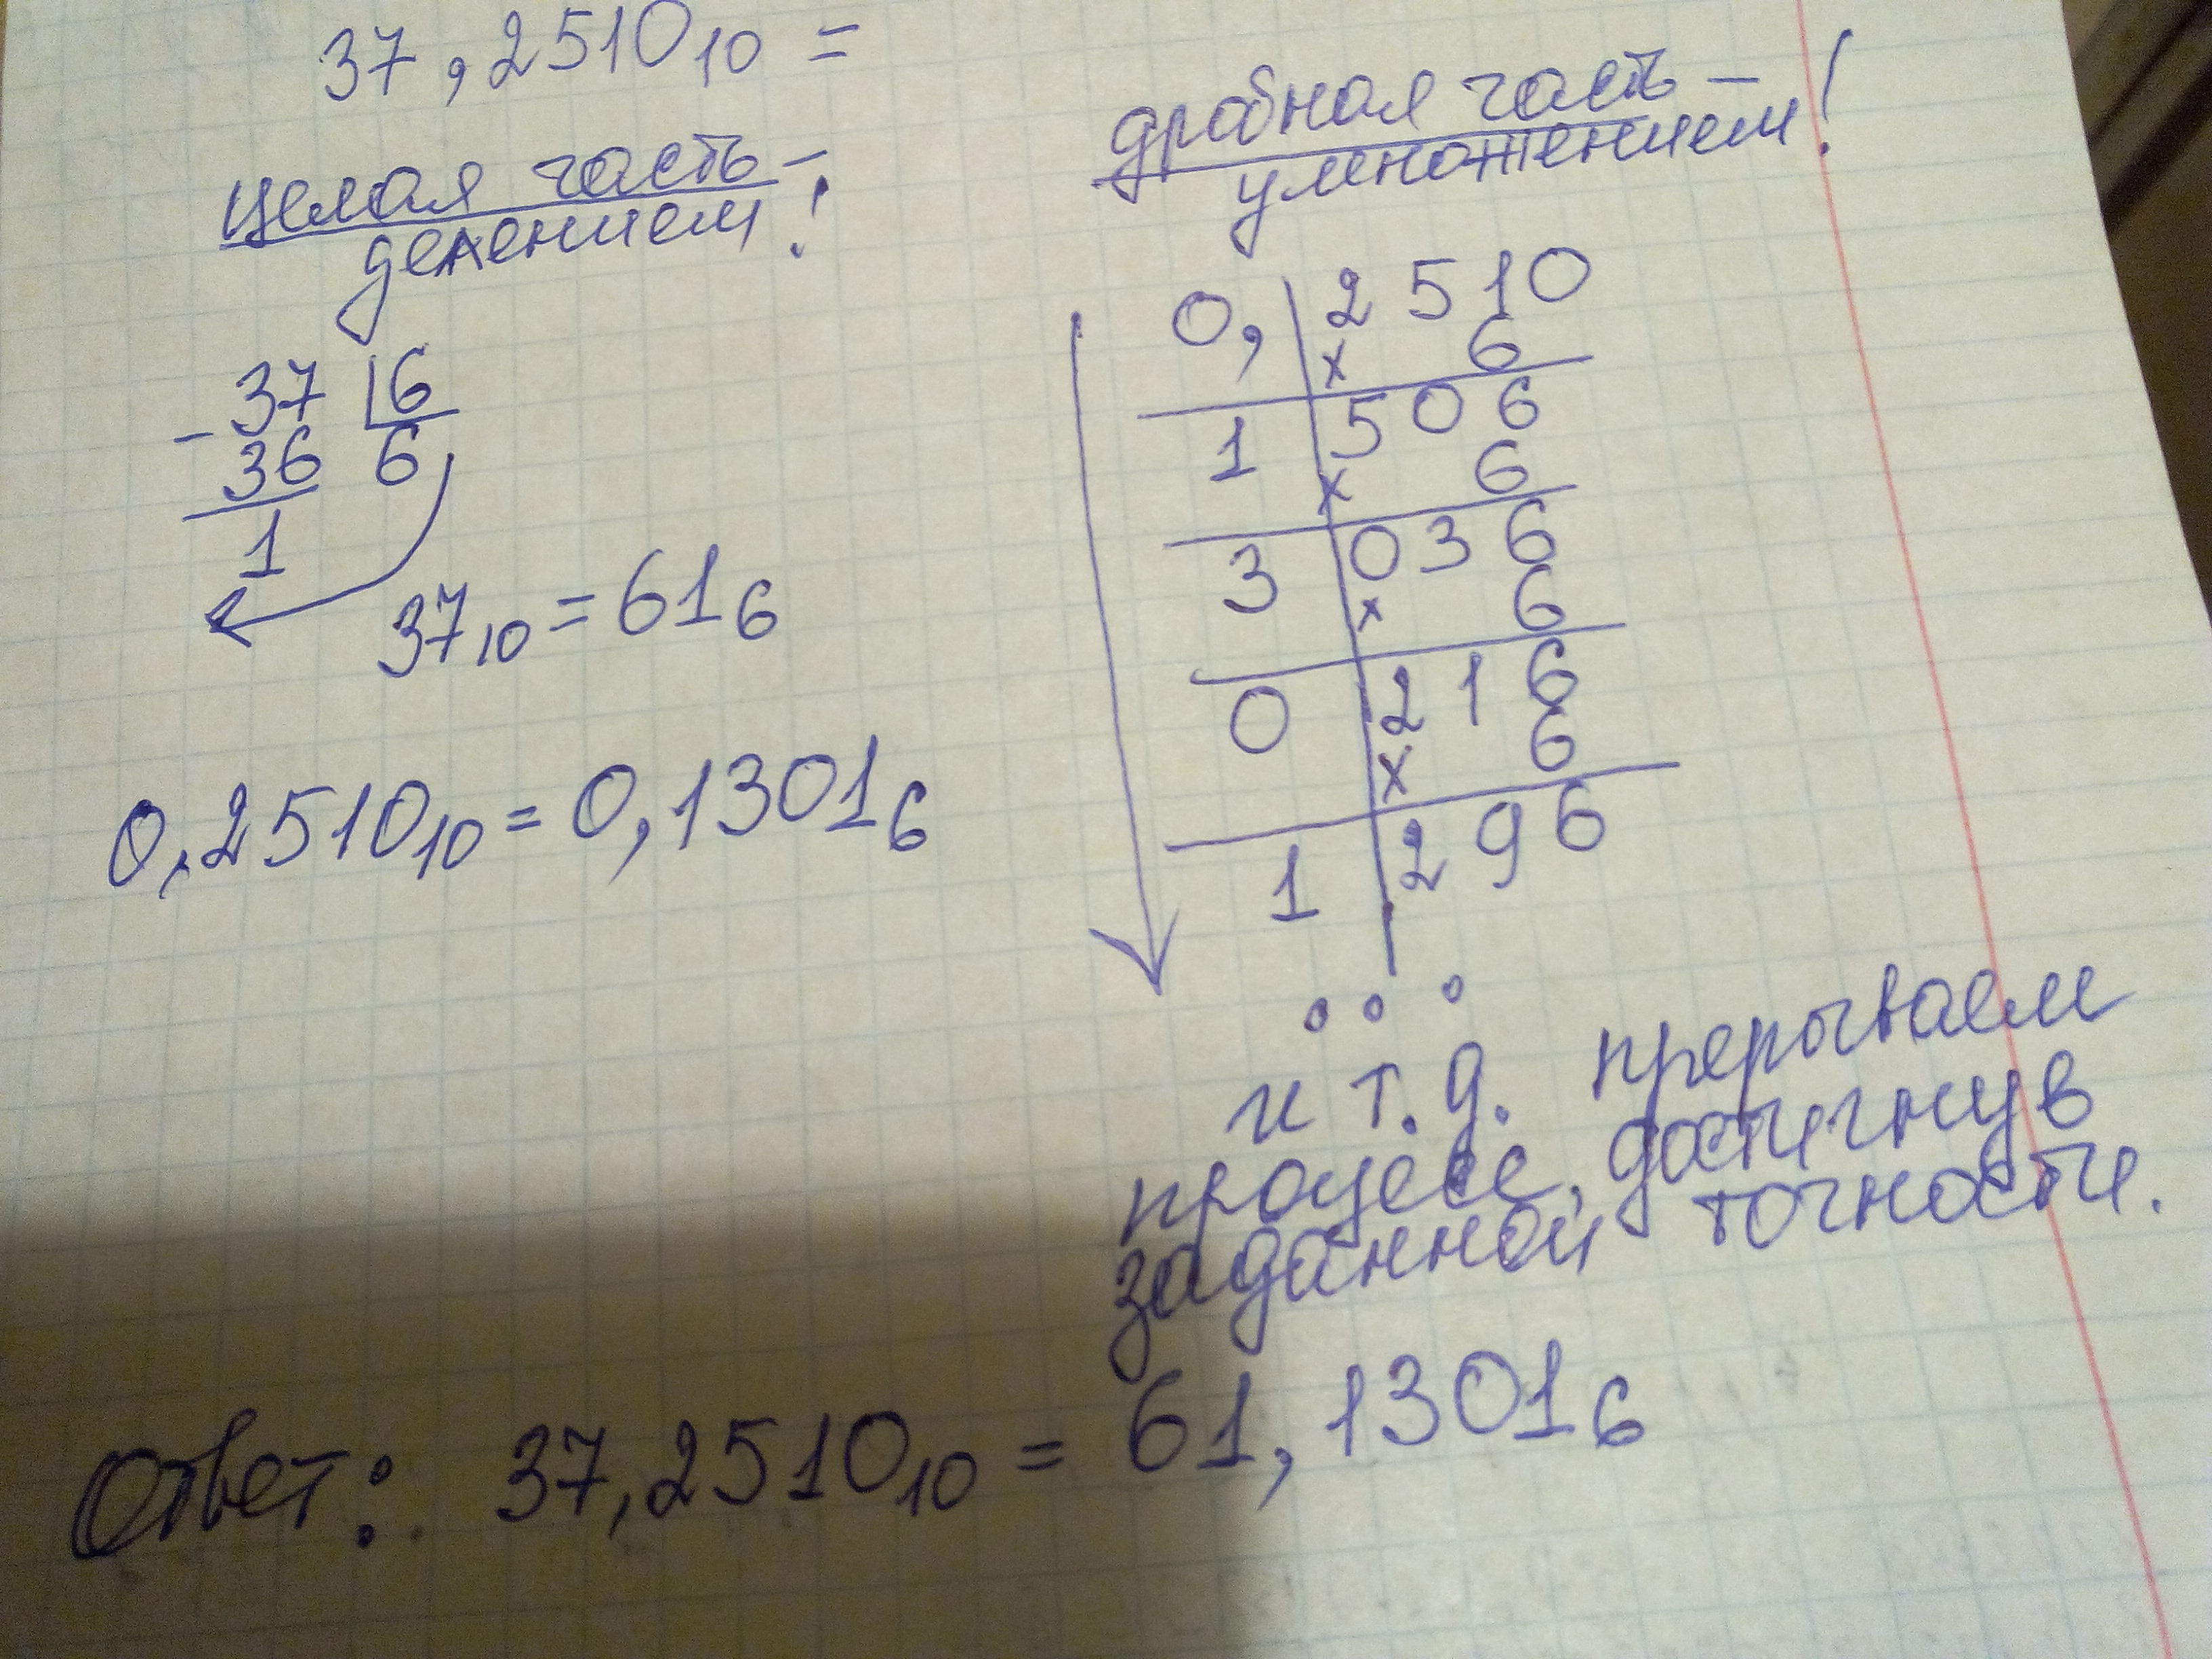 37,2510₁₀ =
целая часть –
делением!
37 | 6
– 36 6
1
37₁₀ = 61₆
0,2510₁₀ = 0,1301₆
дробная часть –
умножением!
0, | 2510
x 6
1 | 506
x 6
3 | 036
x 6
0 | 216
x 6
1 | 296
...
и т.д. прерываем
процесс, достигнув
заданной точности.
Ответ: 37,2510₁₀ = 61,1301₆